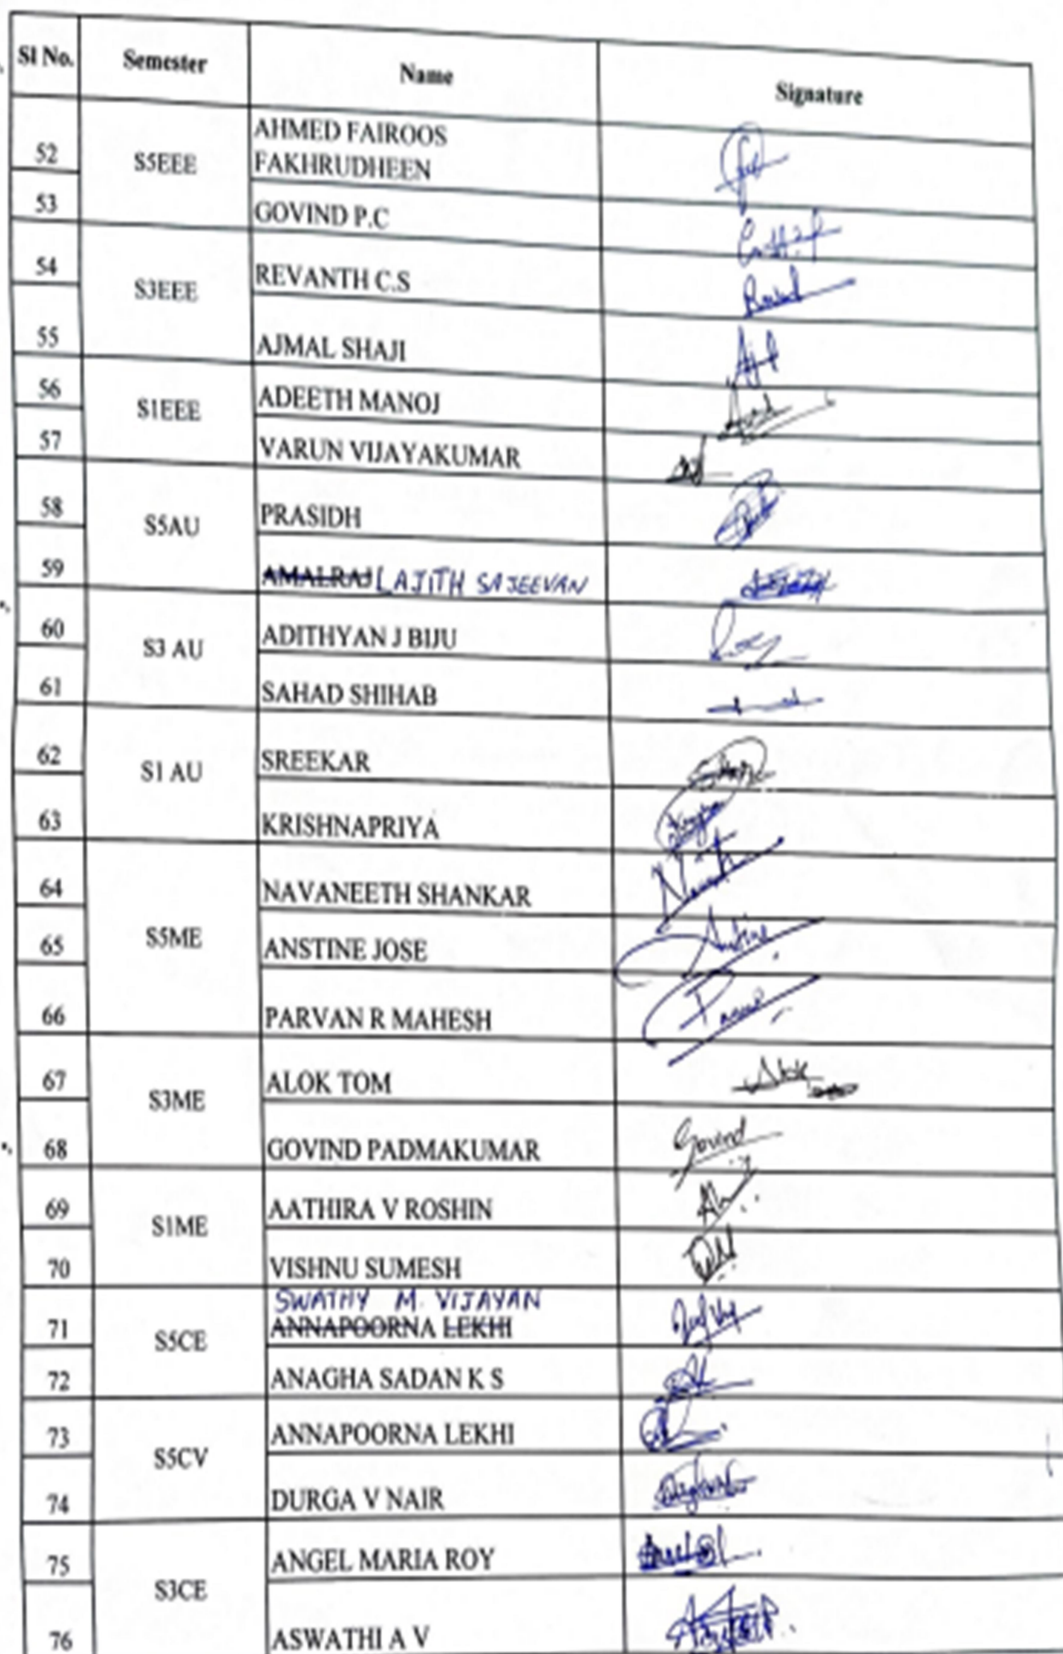 Sl No. Semester Name Signature
52 S5EEE AHMED FAIROOS
FAKHRUDHEEN
53 GOVIND P.C
54 S3EEE REVANTH C.S
55 AJMAL SHAJI
56 S1EEE ADEETH MANOJ
57 VARUN VIJAYAKUMAR
58 S5AU PRASIDH
59 AMALRAJ AJITH SAJEEVAN
60 S3 AU ADITHYAN J BIJU
61 SAHAD SHIHAB
62 S1 AU SREEKAR
63 KRISHNAPRIYA
64 S5ME NAVANEETH SHANKAR
65 ANSTINE JOSE
66 PARVAN R MAHESH
67 S3ME ALOK TOM Alok
68 GOVIND PADMAKUMAR Govind
69 S1ME AATHIRA V ROSHIN
70 VISHNU SUMESH
SWATHY M. VIJAYAN
71 S5CE ANNAPOORNA LEKHI
72 ANAGHA SADAN K S
73 S5CV ANNAPOORNA LEKHI
74 DURGA V NAIR
75 S3CE ANGEL MARIA ROY
76 ASWATHI A V